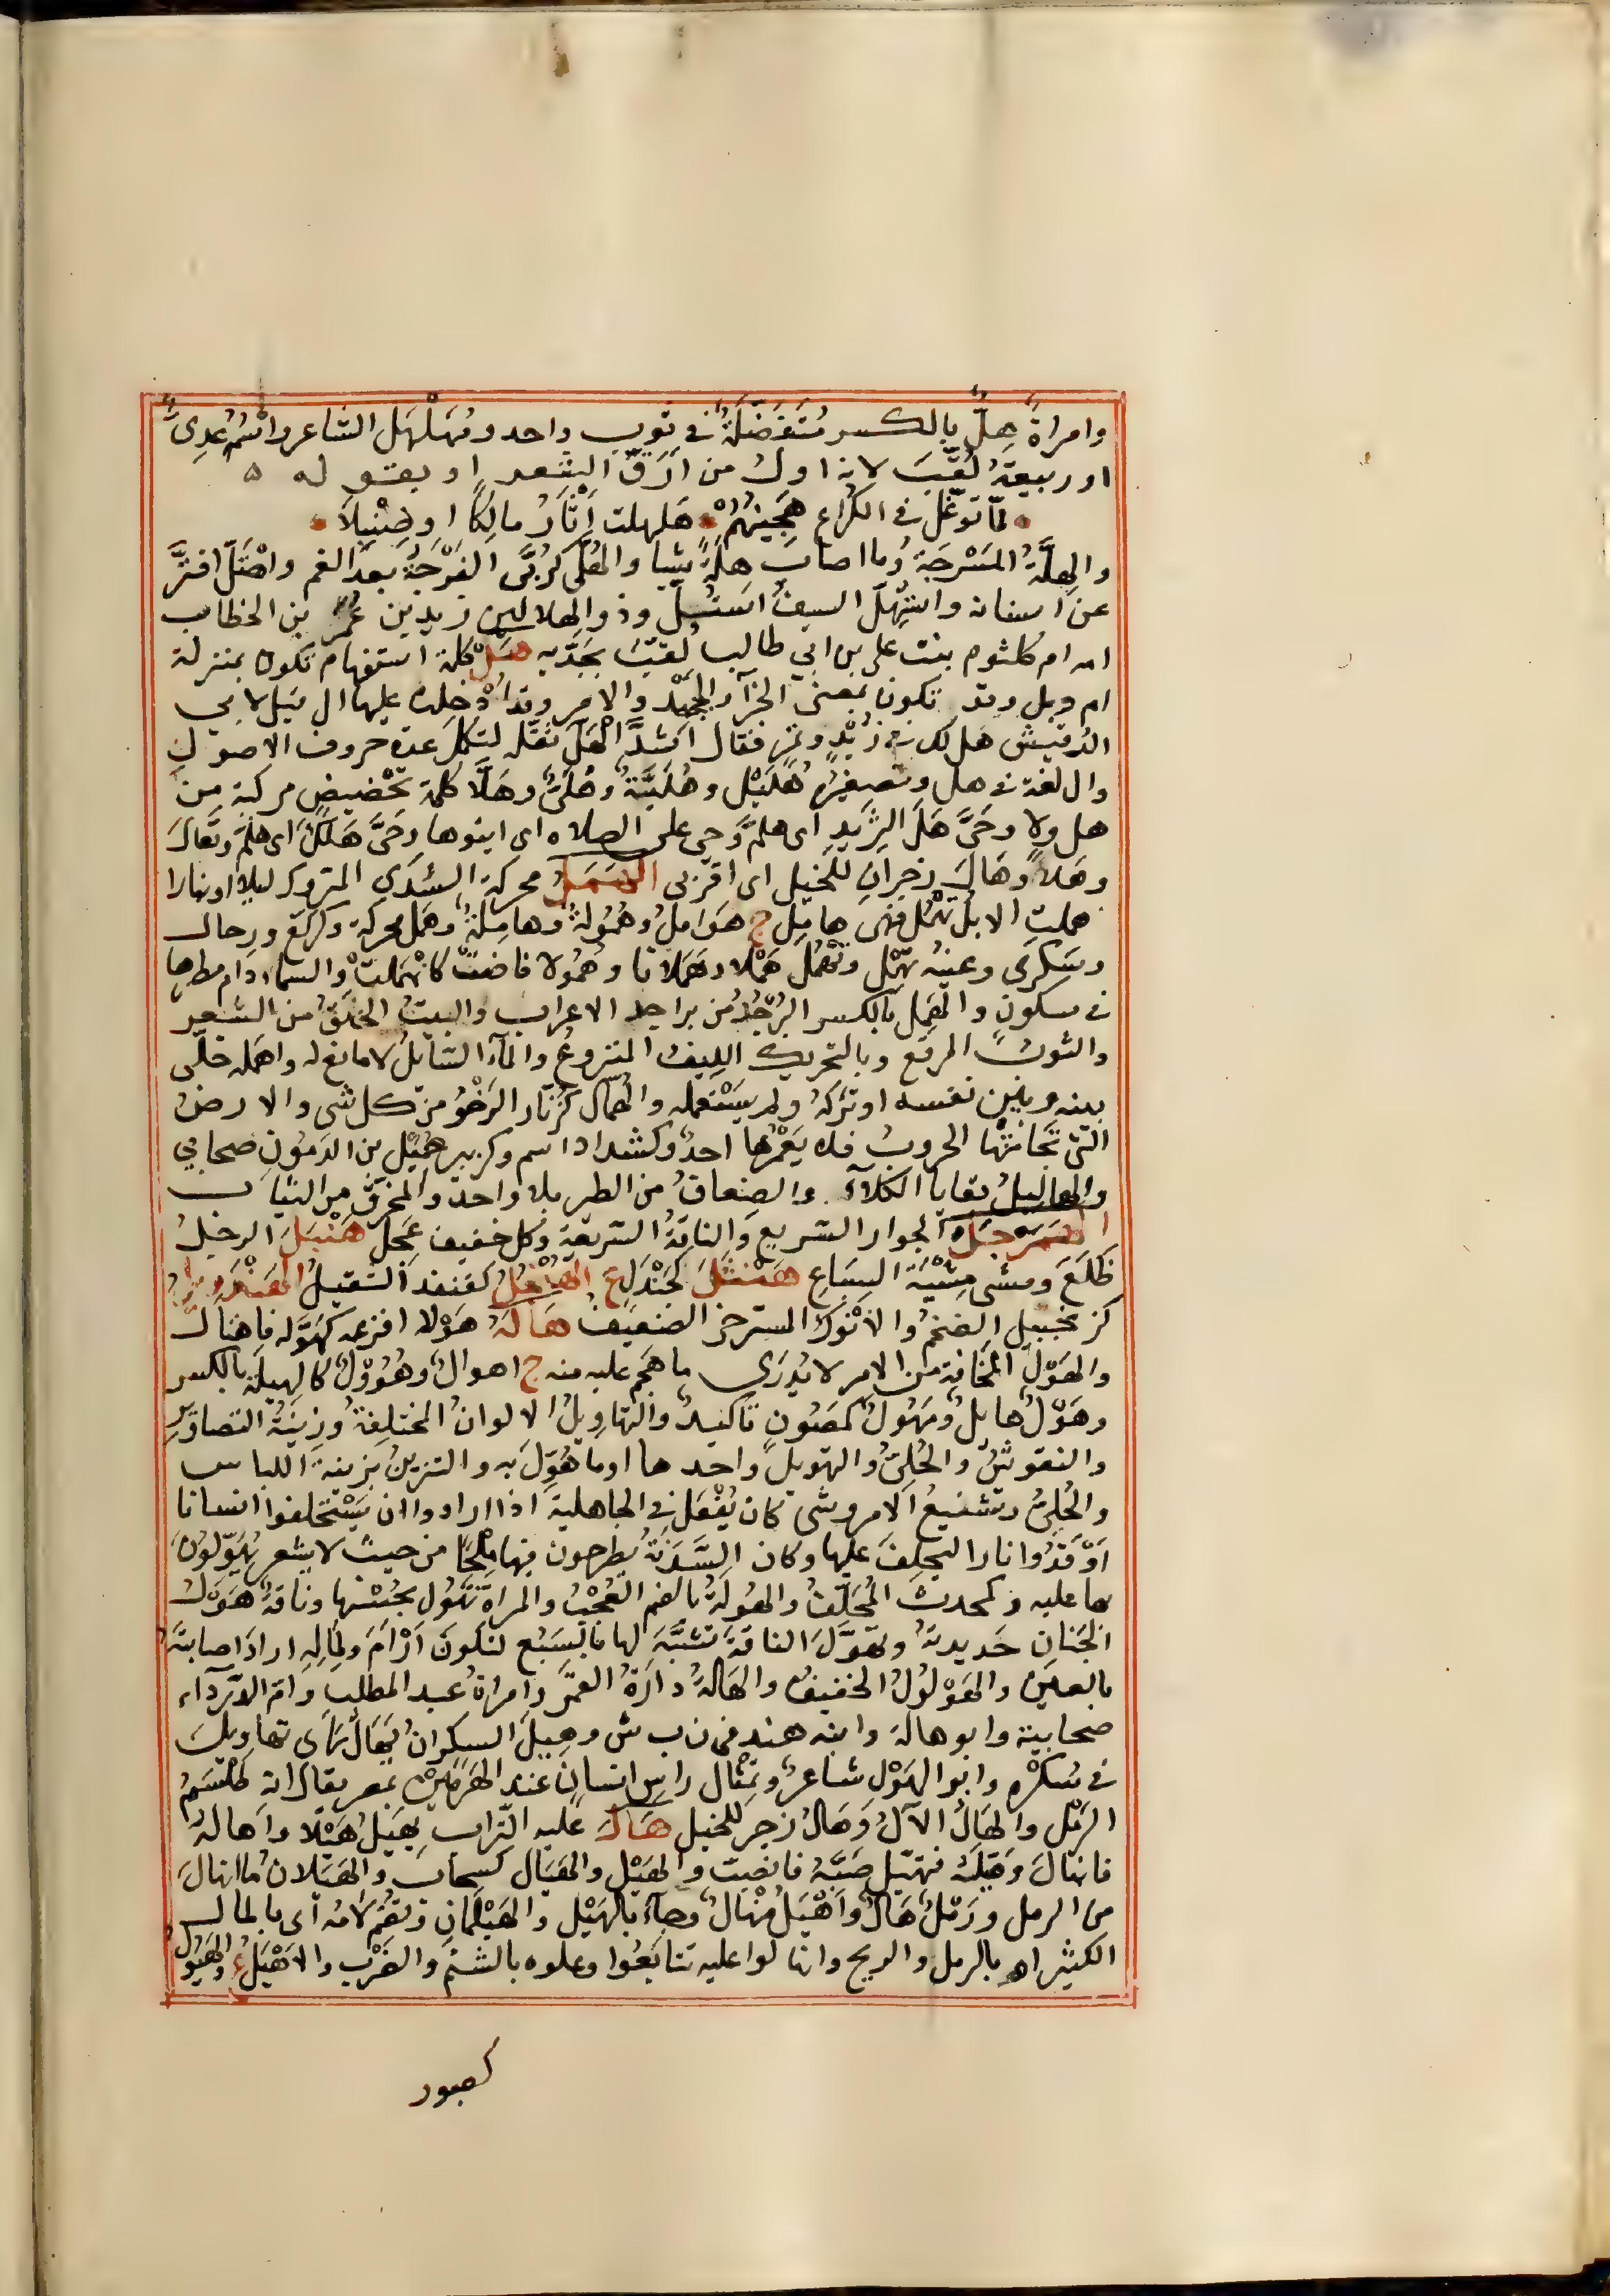 وامراةٌ هِلٌّ بالكسر مُتَفَضِّلَةٌ في ثوب واحد ومُهَلْهَل الشاعر واسْمُه عَدِىٌّ
او ربيعةُ لُقِّبَ لانه اول من اَرَقَّ الشعر او بقوله ه
لمّا توغّل في الكُراع هَجِينُهُمْ هَلهلت اَثْأَرُ مالِكًا او صِنْبِلاَ
والهِلَّةُ المَسْرَجَةُ وما اصابَ هِلَّةً شيا والهُلَّى كرُبَّى الفَرْجَةُ بعد الغم واهْتَلَّ افترَّ
عن اسنانه واسْتُهِلَّ السيفُ استُلَّ وذو الهلالين زيد بن عُمر بن الخطاب
امه ام كلثوم بنت على بن ابي طالب لُقّبَ بجَدَّيه هَلْ كلمة استفهام تكون بمنزلة
ام وبل وقد تكون بمعنى الجزآ والجَحْد والامر وقد اُدْخِلت عليها ال قيل لابي
الدُقيش هل لك في زُبْدٍ وتمرٍ فقال اَشَدُّ الهَلِّ ثقّله لتكمل عدة حروف الاصول
وال لغة في هل وتصغيرُه هُلَيْل وهُلَيَّةٌ وهُلَىٌّ وهَلَّا كلمة تحْضيض مركبة من
هل ولا وحَىَّ هَلَ الثريدِ اى هلمَّ وحى على الصلاه اى ايتوها وحَىَّ هَلَكَ اى هلمّ وتَعالَ
وهَلاً وهَالٍ زجرانِ للخيل اى اقربى الهَمَلُ محركة السُدَى المتروك ليلا اونهارا
هملتِ الابل تهمُل فهى هامِل ج هَوَامِلُ وهُمُولة وهامِلةٌ وهَمَلٌ محركة وكرُكَّع ورِحال
وسَكْرى وعينُه تهمِل وتَهْمُل هَمْلا وهَمَلانا وهُمُولا فاضت كانهملتْ والسماء دام مطرها
في سكون والهِمل بالكسر البُرْجُدُ من براجد الاعراب والبيت الخَلَقُ من الشعر
والثوبُ المرقع وبالتحريك الليف المنزوعُ والمآ السّايل لا مانع له واهمله خلّى
بينه وبين نفسه او تركَهُ ولم يَسْتعمله والهُمّال كزُنّار الرَخْوُ من كل شى والارضُ
التى تَحَامَتْها الحروبُ فلا يَعْمُرها احدٌ وكشداد اسم وكزبير هُمَيْل بن الدَمُون صحابي
والهماليلُ بقايا الكلآ والضعافُ من الطير بلا واحد والمخرَّق من الثياب
الهَمَرْجَلُ الجواد السريع والناقةُ السّريعة وكل خفيف عَجِل هَنْبَلَ الرجلُ
ظَلَعَ ومشى مِشْيَةَ الضِباعِ هَنْتَلَ كجَنْدَلٍ ع الهُنْجُلُ كقنفذ الثقيلُ الهَنْدَوِيلُ
كزنجبيل الضخمُ والاَنْوَكُ المسترخى الضعيفُ هَالَهُ هَوْلا افزعه كهَوَّله فاهتال
والهَوْلُ المخَافة من الامر لا يُدْرَى ما هَجَم عليه منه ج اهوالٌ وهُؤُوْلٌ كالهِيلة بالكسر
وهَوْلٌ هايلٌ ومَهُولٌ كمَصُونٍ تاكيدٌ والتهاوِيلُ الالوانُ المختلِفةُ وزينَةُ التصاوير
والنقوشُ والحُلِىُّ والتهويلُ واحدها او ما هُوِّلَ به والتزيّنُ بزينة اللباس
والحُلِىُّ وتشنيعُ الامر وشى كان يُفْعَل في الجاهلية اذا ارادوا ان يَسْتحلفوا انسانا
اَوْقَدُوا نارا ليحلِفَ عليها وكان السَّدَنَةُ يطرحون فيها مِلْحًا من حيث لا يشعر يُهَوِّلُونَ
بها عليه وكمحدث المُحَلِّفُ والهُولَةُ بالضم العُجْبُ والمراة تَهُول بحُسْنها وناقةٌ هَوْلُ
الجَنانِ حَدِيدتهُ وتهَوَّلَ الناقةَ تشبَّهَ لها بالسَبُع لتكونَ اَرْاَمَ ولِمالِهِ ارادَ اصابتَهُ
بالعين والهَوْلُولُ الخفيفُ والهَالةُ دارةُ القمَر وامراةُ عبد المطلب وامّ الدَّرداء
صحابية وابو هالة وابنه هند في ن ب ش وهِيلَ السكرانُ يُهَالُ رَاى تهاويلَ
في سُكْرْه وابو الهَوْلِ شاعرٌ وتمثال راس انسان عند الهَرَمَيْنِ بمصر يقال انه طِلَّسْمُ
الرَمْل والهَالُ الآلُ وهَالْ زجر للخيل هَالَ عليه التراب يهيلُ هَيْلا واَهالهُ
فانهالَ وهَيَّلَهُ فتهيّل صَبَّهُ فانصبَّ والهَيْل والهَيَال كسحاب والهَيَلان ما انهالَ
من الرمل ورَمْلٌ هَالٌ واَهْيَلُ مُنْهالٌ وجآءَ بالهَيْلِ والهَيْلَمَانِ وتُضَمُّ لامُه اى بالمال
الكثير او بالرمل والريح وانهالوا عليه تتابَعُوا وعلوه بالشتم والضَرْب والاَهْيَلُ ع والهَيُول
كصبور